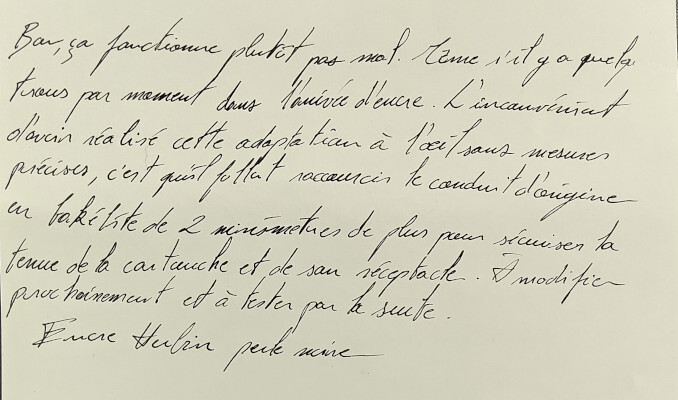 Bon, ça fonctionne plutôt pas mal. Même s'il y a quelq
trous par moment dans l'arrivée d'encre. L'inconvénient
d'avoir réalisé cette adaptation à l'œil sans mesures
précises, c'est qu'il fallait raccourcir le conduit d'origine
en bakélite de 2 minimètres de plus pour sécuriser la
tenue de la cartouche et de son réceptacle. À modifier
prochainement et à tester par la suite.
Encre Herbin perle noire